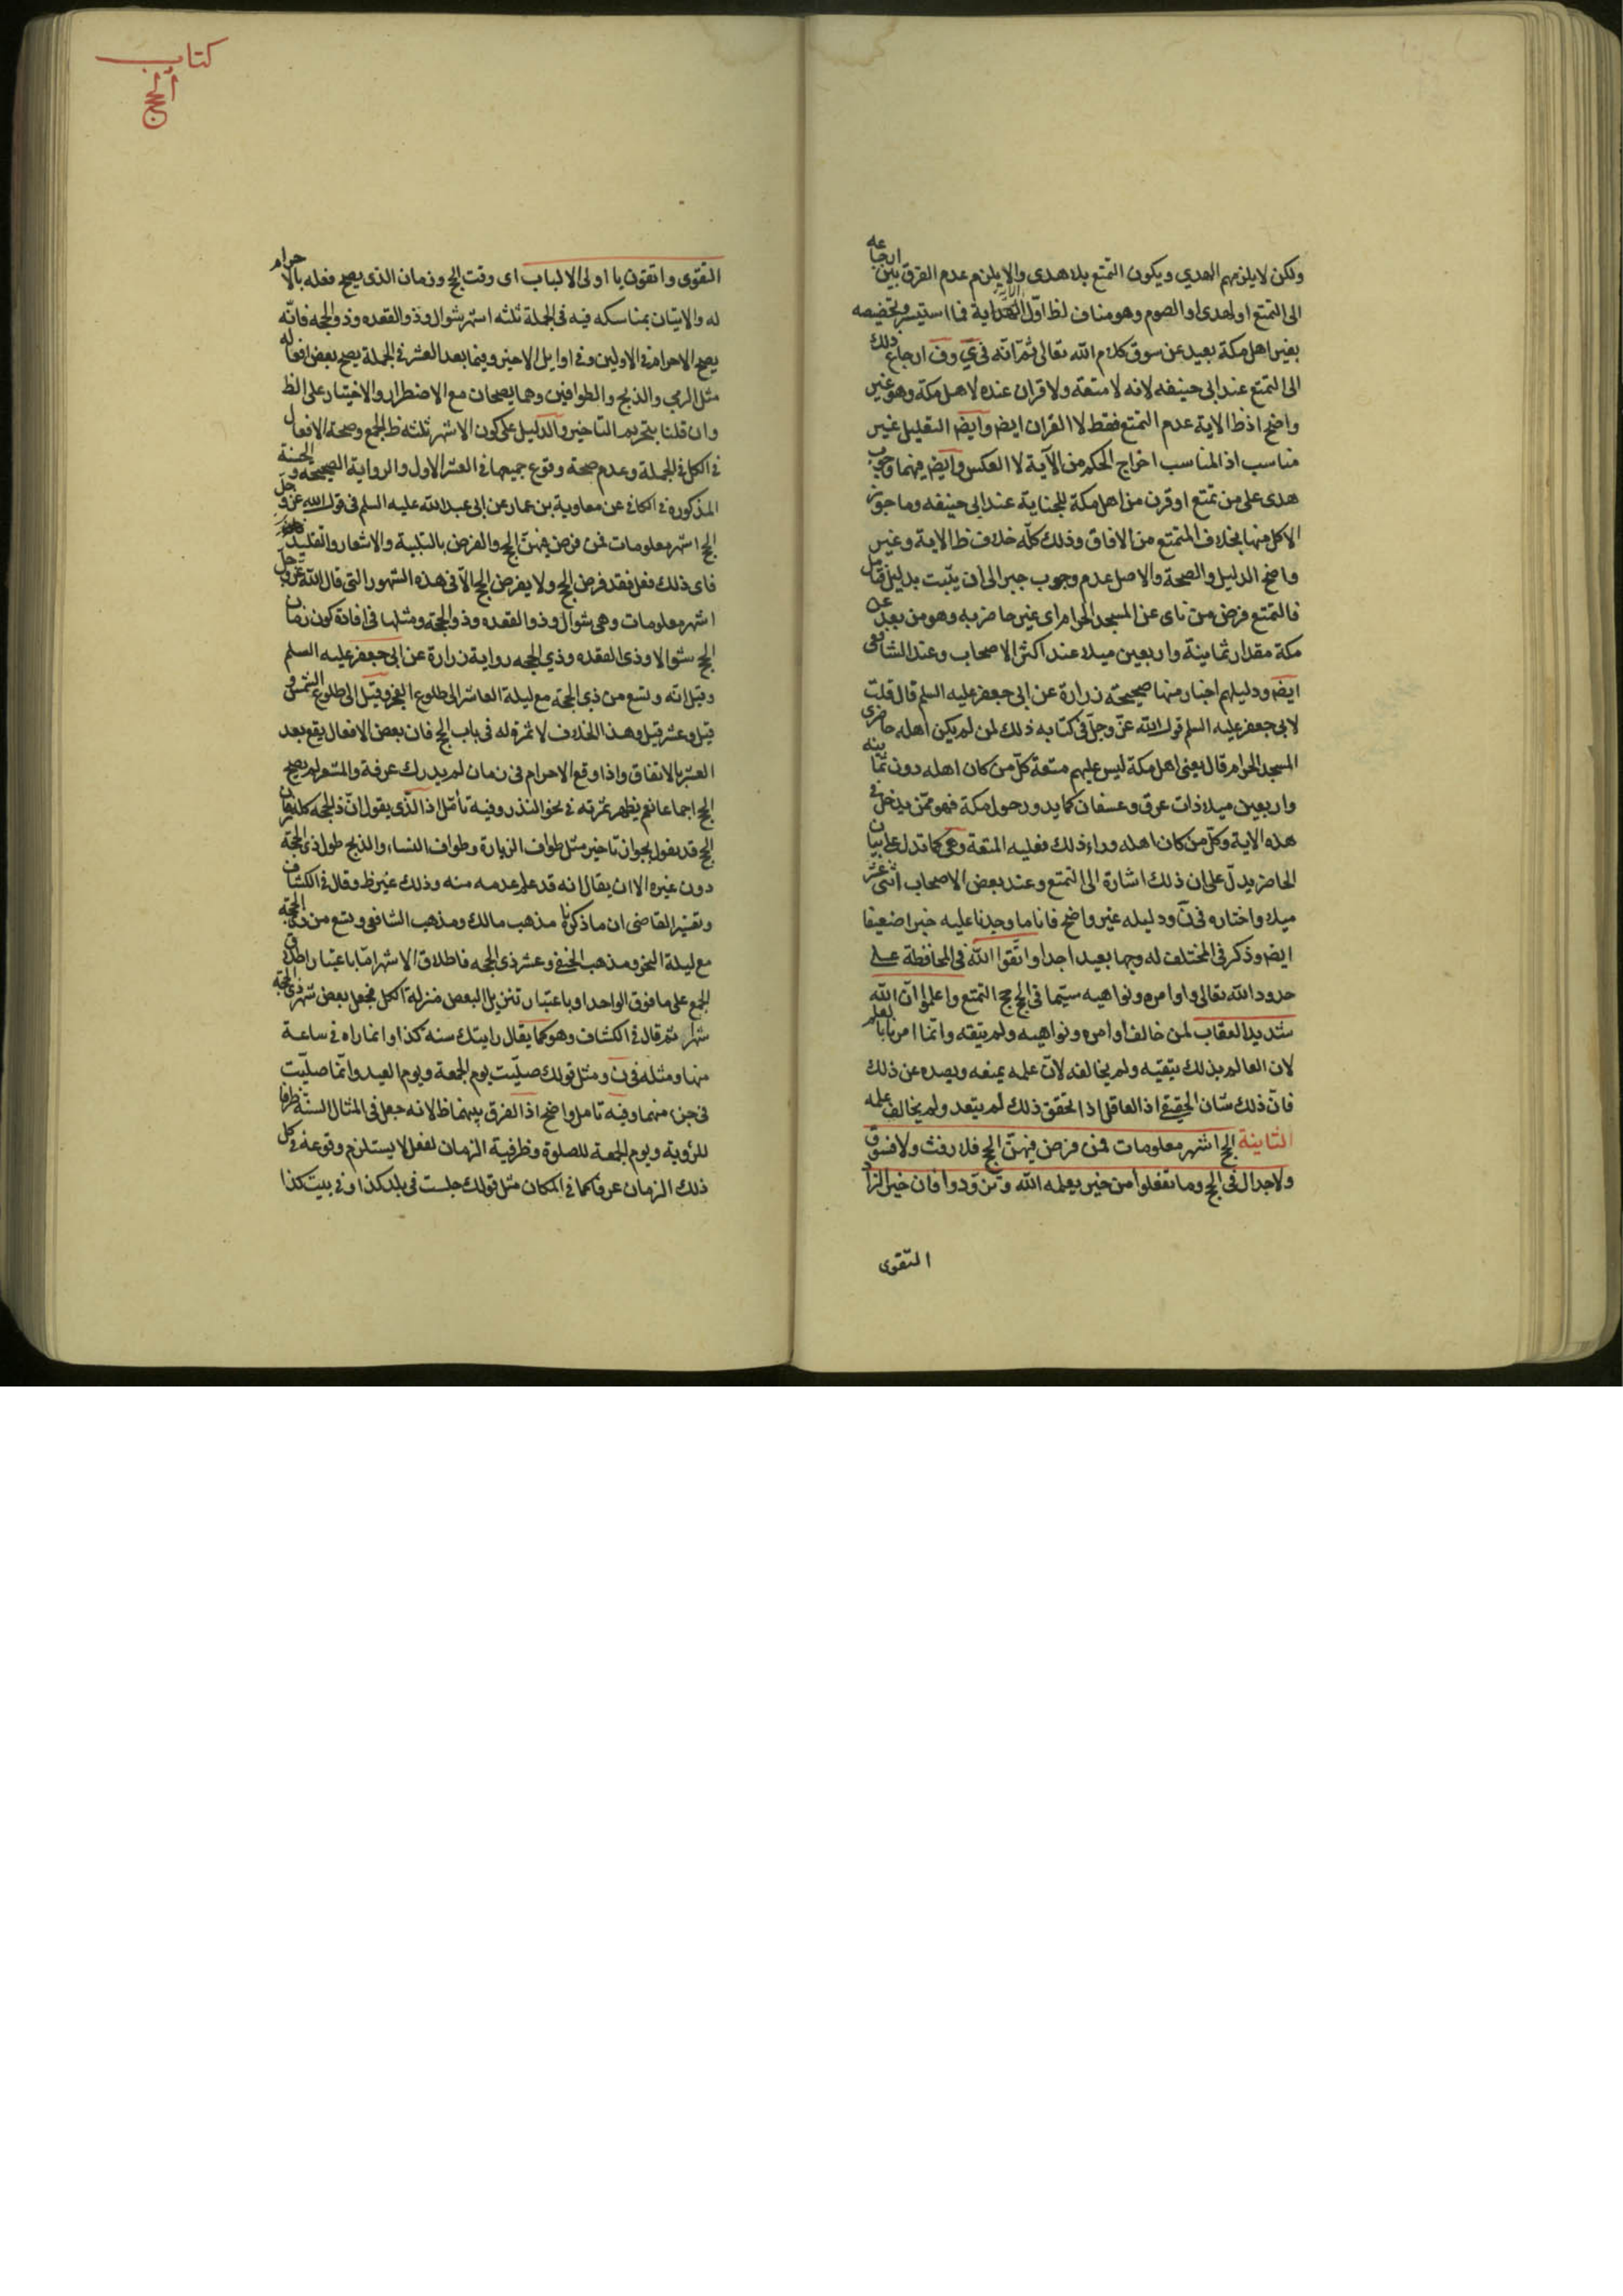 ولكن لا يلزمهم الهدي ويكون التمتع بلا هدى والا يلزم عدم الفرق بين ارجاعه
الى التمتع او الهدى او الصوم وهو مناف لظ اوّل الآية فما استيسر وتخصيصه
بغير اهل مكة بعيد عن سوق كلام الله تعالى ثمّ انّه فى ى وف ارجاع ذلك
الى التمتع عند ابى حنيفه لانه لا متعة ولا قران عنده لاهل مكة وهو غير
واضح اذ ظ الاية عدم التمتع فقط لا القران ايض وايض التعليل غير
مناسب اذ المناسب اخراج الحكم من الآية لا العكس وايض فيهما وجوب
هدى على من تمتع او قرن من اهل مكة للجناية عند ابى حنيفه وما جوز
الاكل منها بخلاف المتمتع من الافاق وذلك كلّه خلاف ظ الاية وغير
واضح الدليل والصحة والاصل عدم وجوب جبر الى ان يثبت بدليل فتامل
فالتمتع فرض من ناى عن المسجد الحرام اى غير حاضر به وهو من بعد عن
مكة مقدار ثمانية واربعين ميلا عند اكثر الاصحاب وعند الشافعى
ايض ودليلهم اخبار منها صحيحة زرارة عن ابى جعفر عليه السلم قال قلت
لابى جعفر عليه السلم قول الله عزّ وجلّ فى كتابه ذلك لمن لم يكن اهله حاضرى
المسجد الحرام قال يعنى اهل مكة ليس عليهم متعة كلّ من كان اهله دون ثمانيه
واربعين ميلا ذات عرق وعسفان كما يدور حول مكة فهو ممّن يدخل فى
هذه الاية وكلّ من كان اهله وراء ذلك فعليه المتعة وهى كما تدل على بيان
الحاضر يدلّ على ان ذلك اشارة الى التمتع وعند بعض الاصحاب اثنى عشر
ميلا واختاره فى ن ودليله غير واضح فانا ما وجدنا عليه خبرا ضعيفا
ايض وذكر فى المختلف له وجها بعيدا جدا واتّقوا الله فى المحافظة على
حدود الله تعالى واوامره ونواهيه سيّما فى الحج حج التمتع واعلموا انّ الله
شديد العقاب لمن خالف اوامره ونواهيه ولم يتقه وانّما امرنا بالعلم
لان العالم بذلك يتقيه ولم يخالفه لانّ علمه يمنعه ويصده عن ذلك
فانّ ذلك شان الحقيقى اذ العاقل اذا تحقق ذلك لم يتعد ولم يخالف علمه
الثانية الحج اشهر معلومات فمن فرض فيهنّ الحج فلا رفث ولا فسوق
ولا جدال فى الحج وما تفعلوا من خير يعلمه الله وتزوّدوا فان خير الزاد
التّقوى
كتاب
الحج
التقوى واتقون يا اولى الالباب اى وقت الحج وزمان الذى يصح فعله بالاحرام
له والاتيان بمناسكه فيه فى الجملة ثلثه اشهر شوال وذو القعده وذو الحجه فانّه
يصح الاحرام فى الاولين وفى اوايل الاخير وفيما بعد العشر فى الجملة يصح بعض افعاله
مثل الرمى والذبح والطوافين وهما يصحان مع الاضطرار والاختيار على الظ
وان قلنا بتحريم التاخير والدليل على كون الاشهر ثلثه ظ الجمع وصحة الافعال
فى الكل فى الجملة وعدم صحة وقوع جميعها فى العشر الاول والرواية الصحيحة والحسنة
المذكورة فى الكافى عن معاوية بن عمار عن ابى عبد الله عليه السلم فى قول الله عزّ وجلّ
الحج اشهر معلومات فمن فرض فيهنّ الحج والفرض بالتلبية والاشعار والتقليد
فاى ذلك فعل فقد فرض الحج ولا يفرض الحج الّا فى هذه الشهور التى قال الله عزّ وجلّ
اشهر معلومات وهى شوال وذو القعده وذو الحجة ومثلها فى افادة كون زمان
الحج شوالا وذى القعده وذي الحجه رواية زرارة عن ابى جعفر عليه السلم
وقيل انّه وتسع من ذي الحجة مع ليلة العاشر الى طلوع الفجر وقيل الى طلوع الشمس و
قيل وعشر قيل وهذا الخلاف لا ثمرة له فى باب الحج فان بعض الافعال يقع بعد
العشر بالاتفاق واذا وقع الاحرام فى زمان لم يدرك عرفة والمشعر لم يصح
الحج اجماعا نعم يظهر ثمرته فى نحو النذر وفيه تأمّل اذ الّذى يقول انّ ذا الحجه كله زمان
الحج قد يقول بجواز تاخير مثل طواف الزيارة وطواف النساء والذبح طول ذى الحجة
دون غيره الا ان يقال انه قد علم عدمه منه وذلك غير ظ وقال فى الكشاف
وتفسير القاضى ان ما ذكرنا مذهب مالك ومذهب الشافعى وتسع من ذى الحجة
مع ليلة النحر ومذهب الحنفى وعشر ذى الحجه فاطلاق الاشهر امّا باعتبار اطلاق
الجمع على ما فوق الواحد او باعتبار تنزيل البعض منزلة الكل فجعل بعض شهر ذى الحجة
شهرا ثم قال فى الكشاف وهو كما يقال رايتك سنه كذا وانما راه فى ساعة
منها ومثله فى ن ومثل قولك صلّيت يوم الجمعة ويوم العيد وانّما صلّيت
فى جزء منهما وفيه تامل واضح اذ الفرق بينهما ظ لانه جعل فى المثال السنّة ظرفا
للرؤية ويوم الجمعة للصلوة وظرفية الزمان لفعل لا يستلزم وقوعه فى كل
ذلك الزمان عرفا كما فى المكان مثل قولك جلست فى بلد كذا وفى بيت كذا